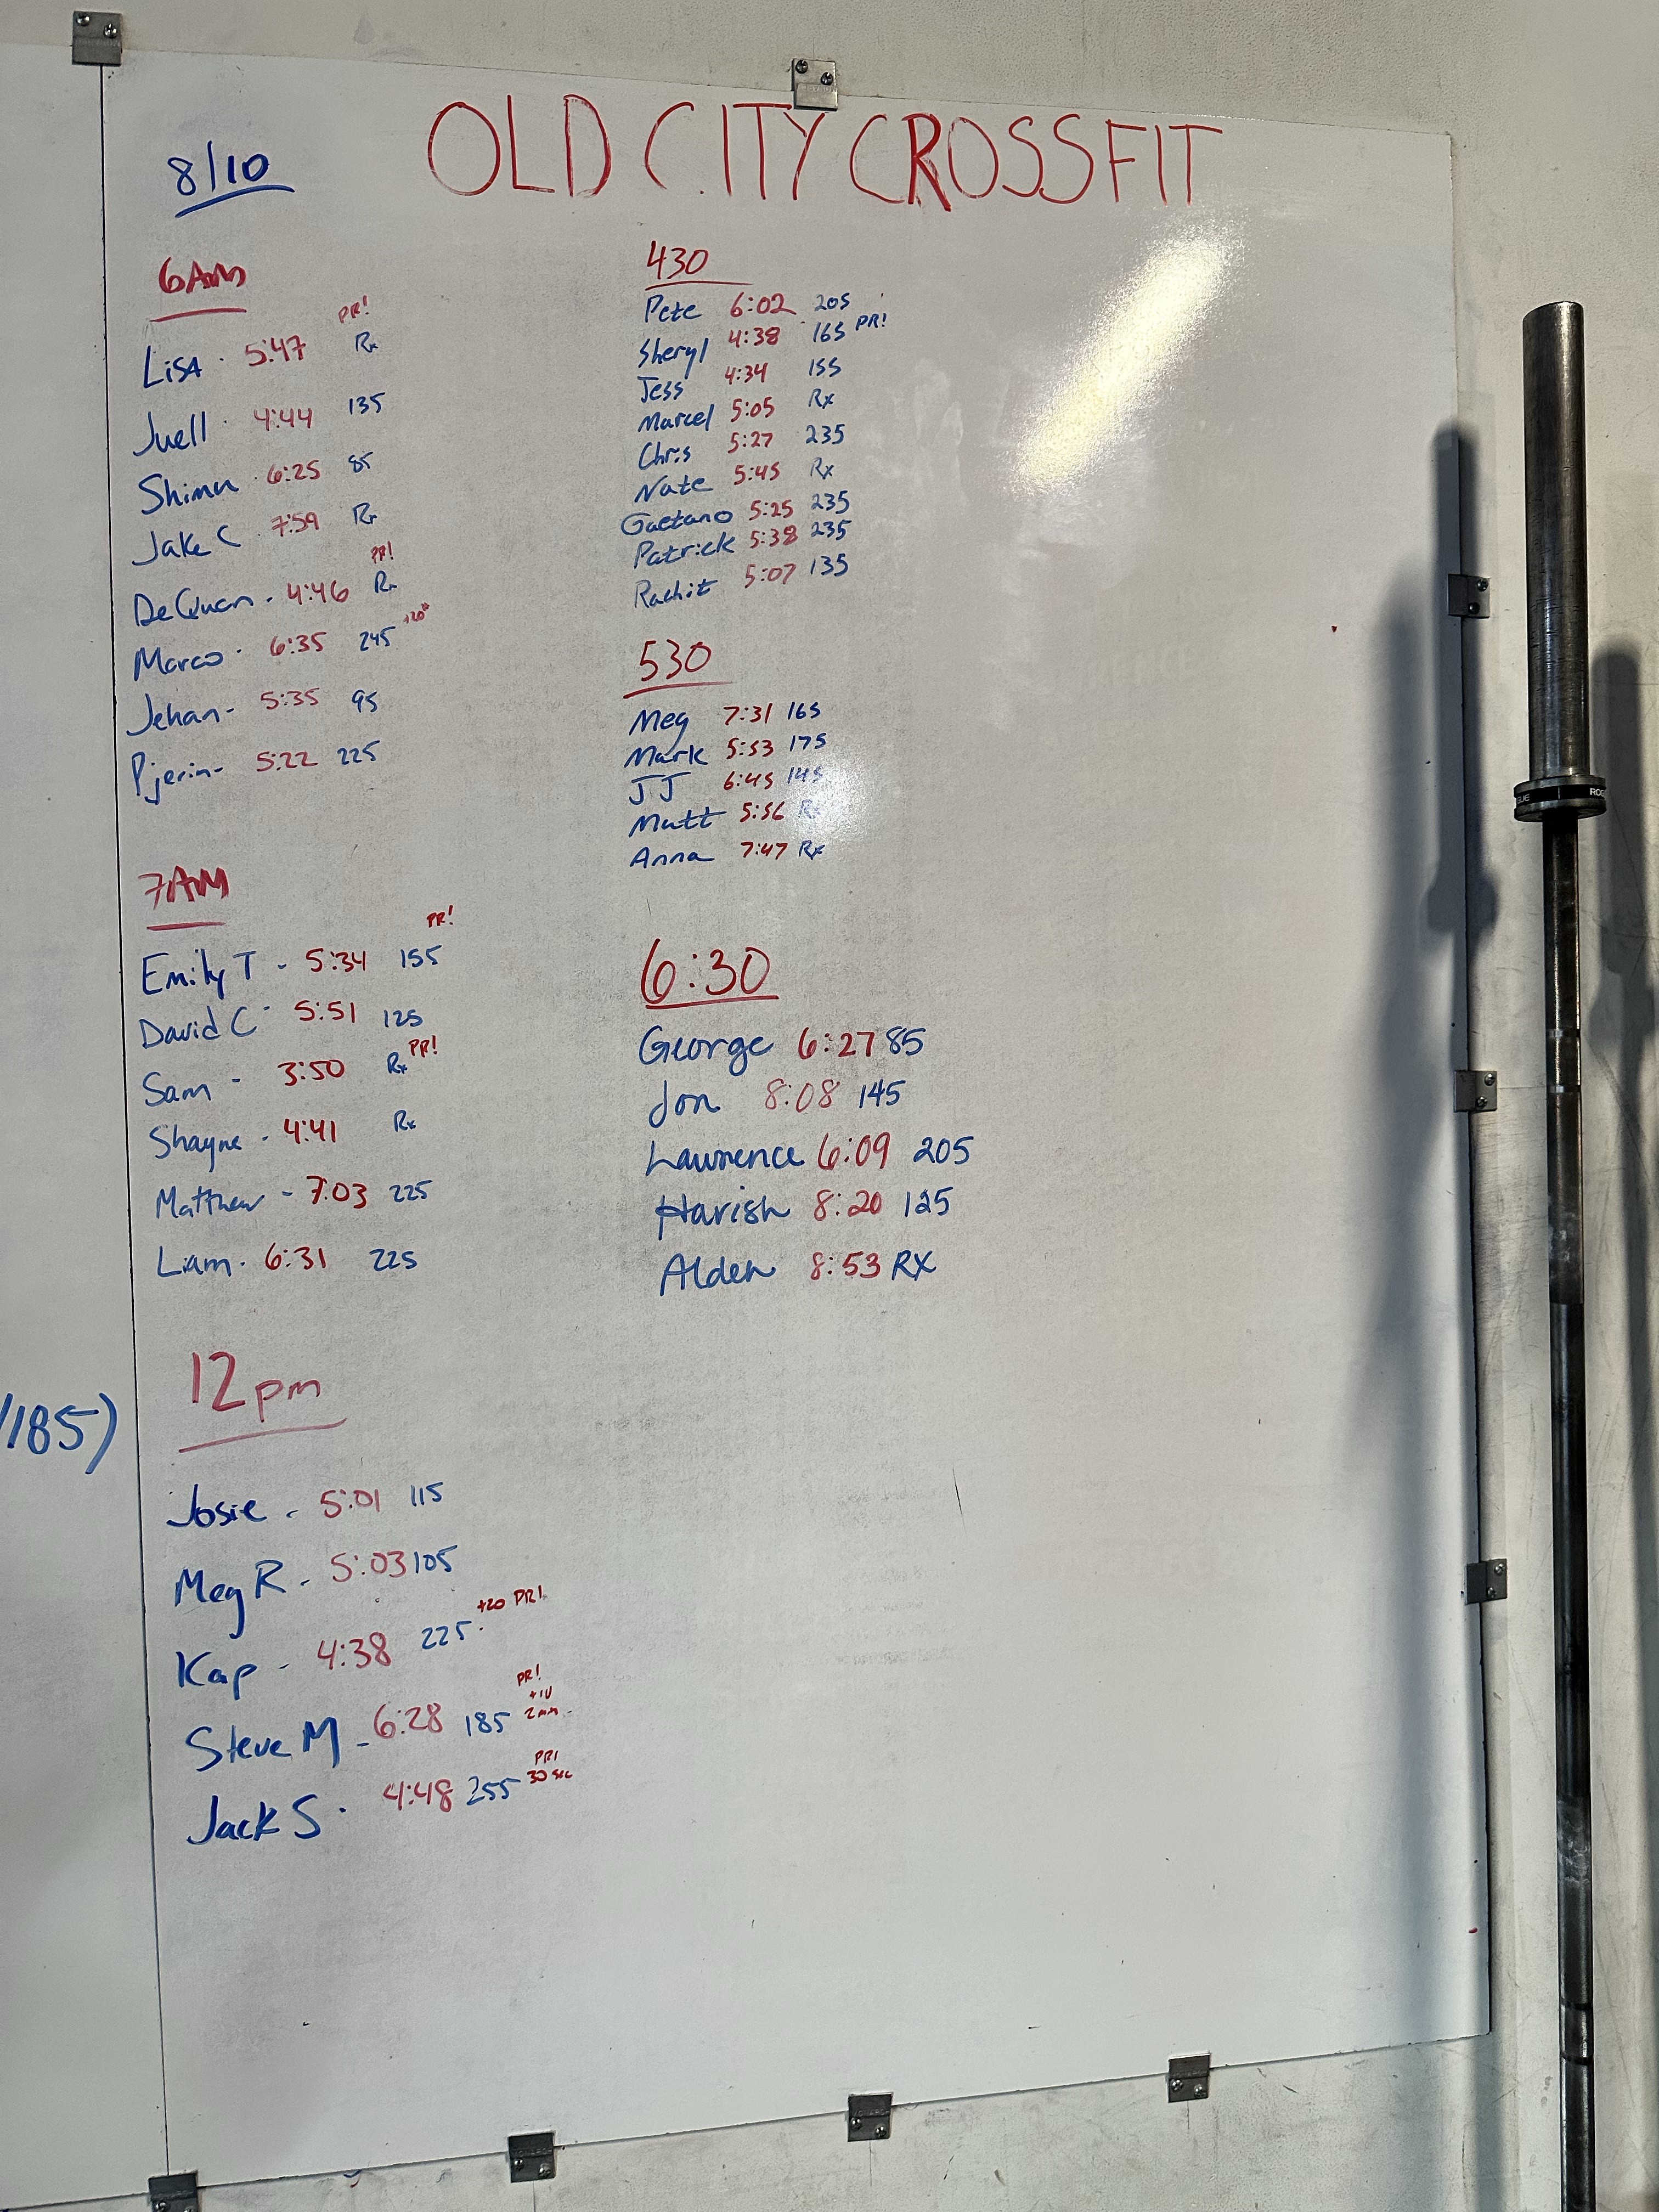 OLD CITY CROSSFIT
8/10
6AM
PR!
Lisa · 5:47 Rx
Juell · 4:44 135
Shimu · 6:25 85
Jake C · 7:59 Rx
PR!
DeQuan - 4:46 Rx
Marco · 6:35 245 +20#
Jehan - 5:35 95
Pjerin - 5:22 225
7AM
PR!
Emily T - 5:34 155
David C - 5:51 125
Sam - 3:50 Rx PR!
Shayne - 4:41 Rx
Matthew - 7:03 225
Liam · 6:31 225
12pm
Josie - 5:01 115
Meg R - 5:03 105
Kap - 4:38 225 +20 PR!
PR!
+10
Steve M - 6:28 185 2min
PR!
Jack S · 4:48 255 30 sec
430
Pete 6:02 205
Sheryl 4:38 165 PR!
Jess 4:34 155
Marcel 5:05 Rx
Chris 5:27 235
Nate 5:45 Rx
Gaetano 5:25 235
Patrick 5:38 235
Rachit 5:07 135
530
Meg 7:31 165
Mark 5:53 175
JJ 6:45 145
Matt 5:56 Rx
Anna 7:47 Rx
6:30
George 6:27 85
Jon 8:08 145
Lawrence 6:09 205
Harish 8:20 125
Alden 8:53 RX
/185)